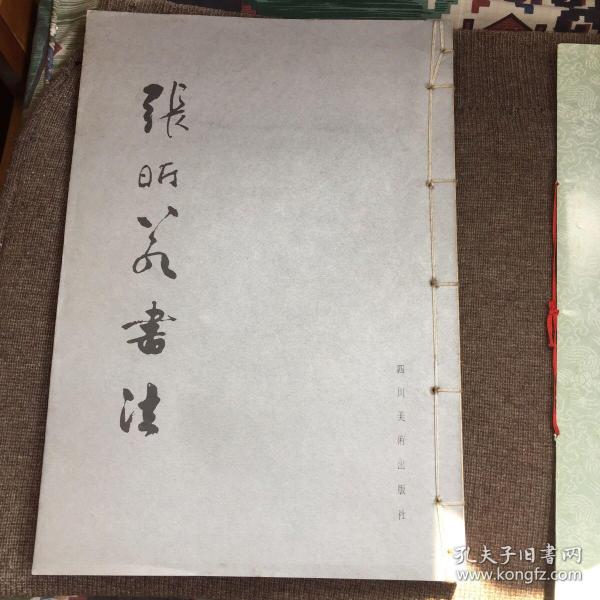 張昕若書法
四川美術出版社
孔夫子旧書网
www.kongfz.com